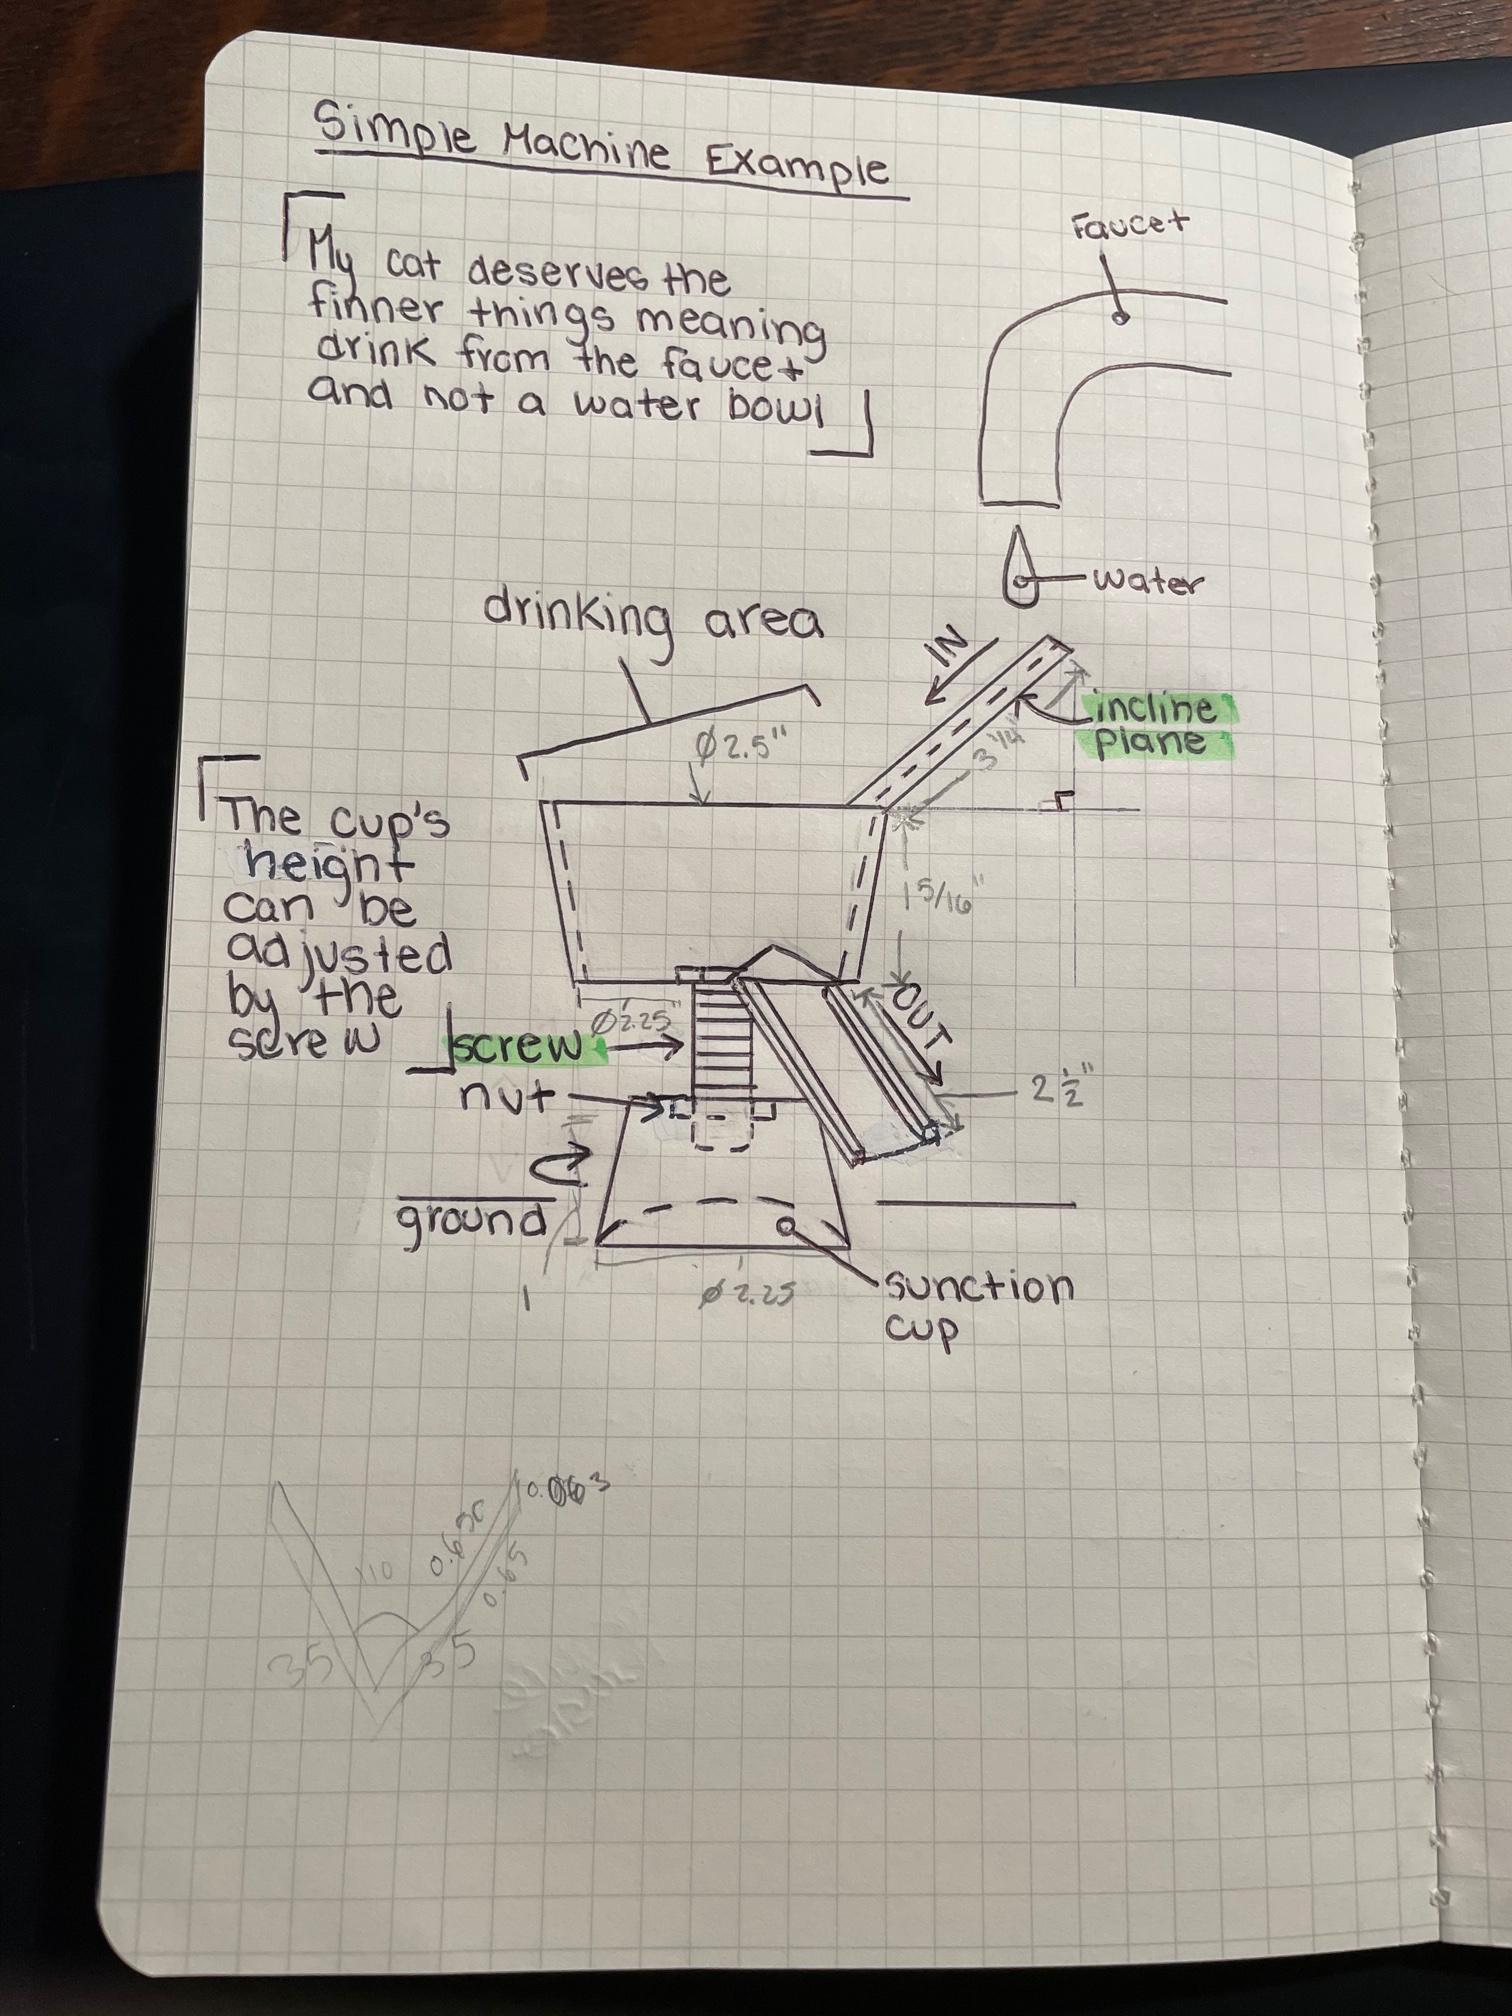 Simple Machine Example
My cat deserves the
finner things meaning
drink from the faucet
and not a water bowl
Faucet
water
drinking area
IN
incline
plane
Ø2.5"
3 1/4"
The cup's
height
can be
adjusted
by the
screw
1 5/16"
OUT
Ø2.25"
screw
nut
2 1/2"
ground
1
Ø2.25
sunction
cup
110
0.65
35
35